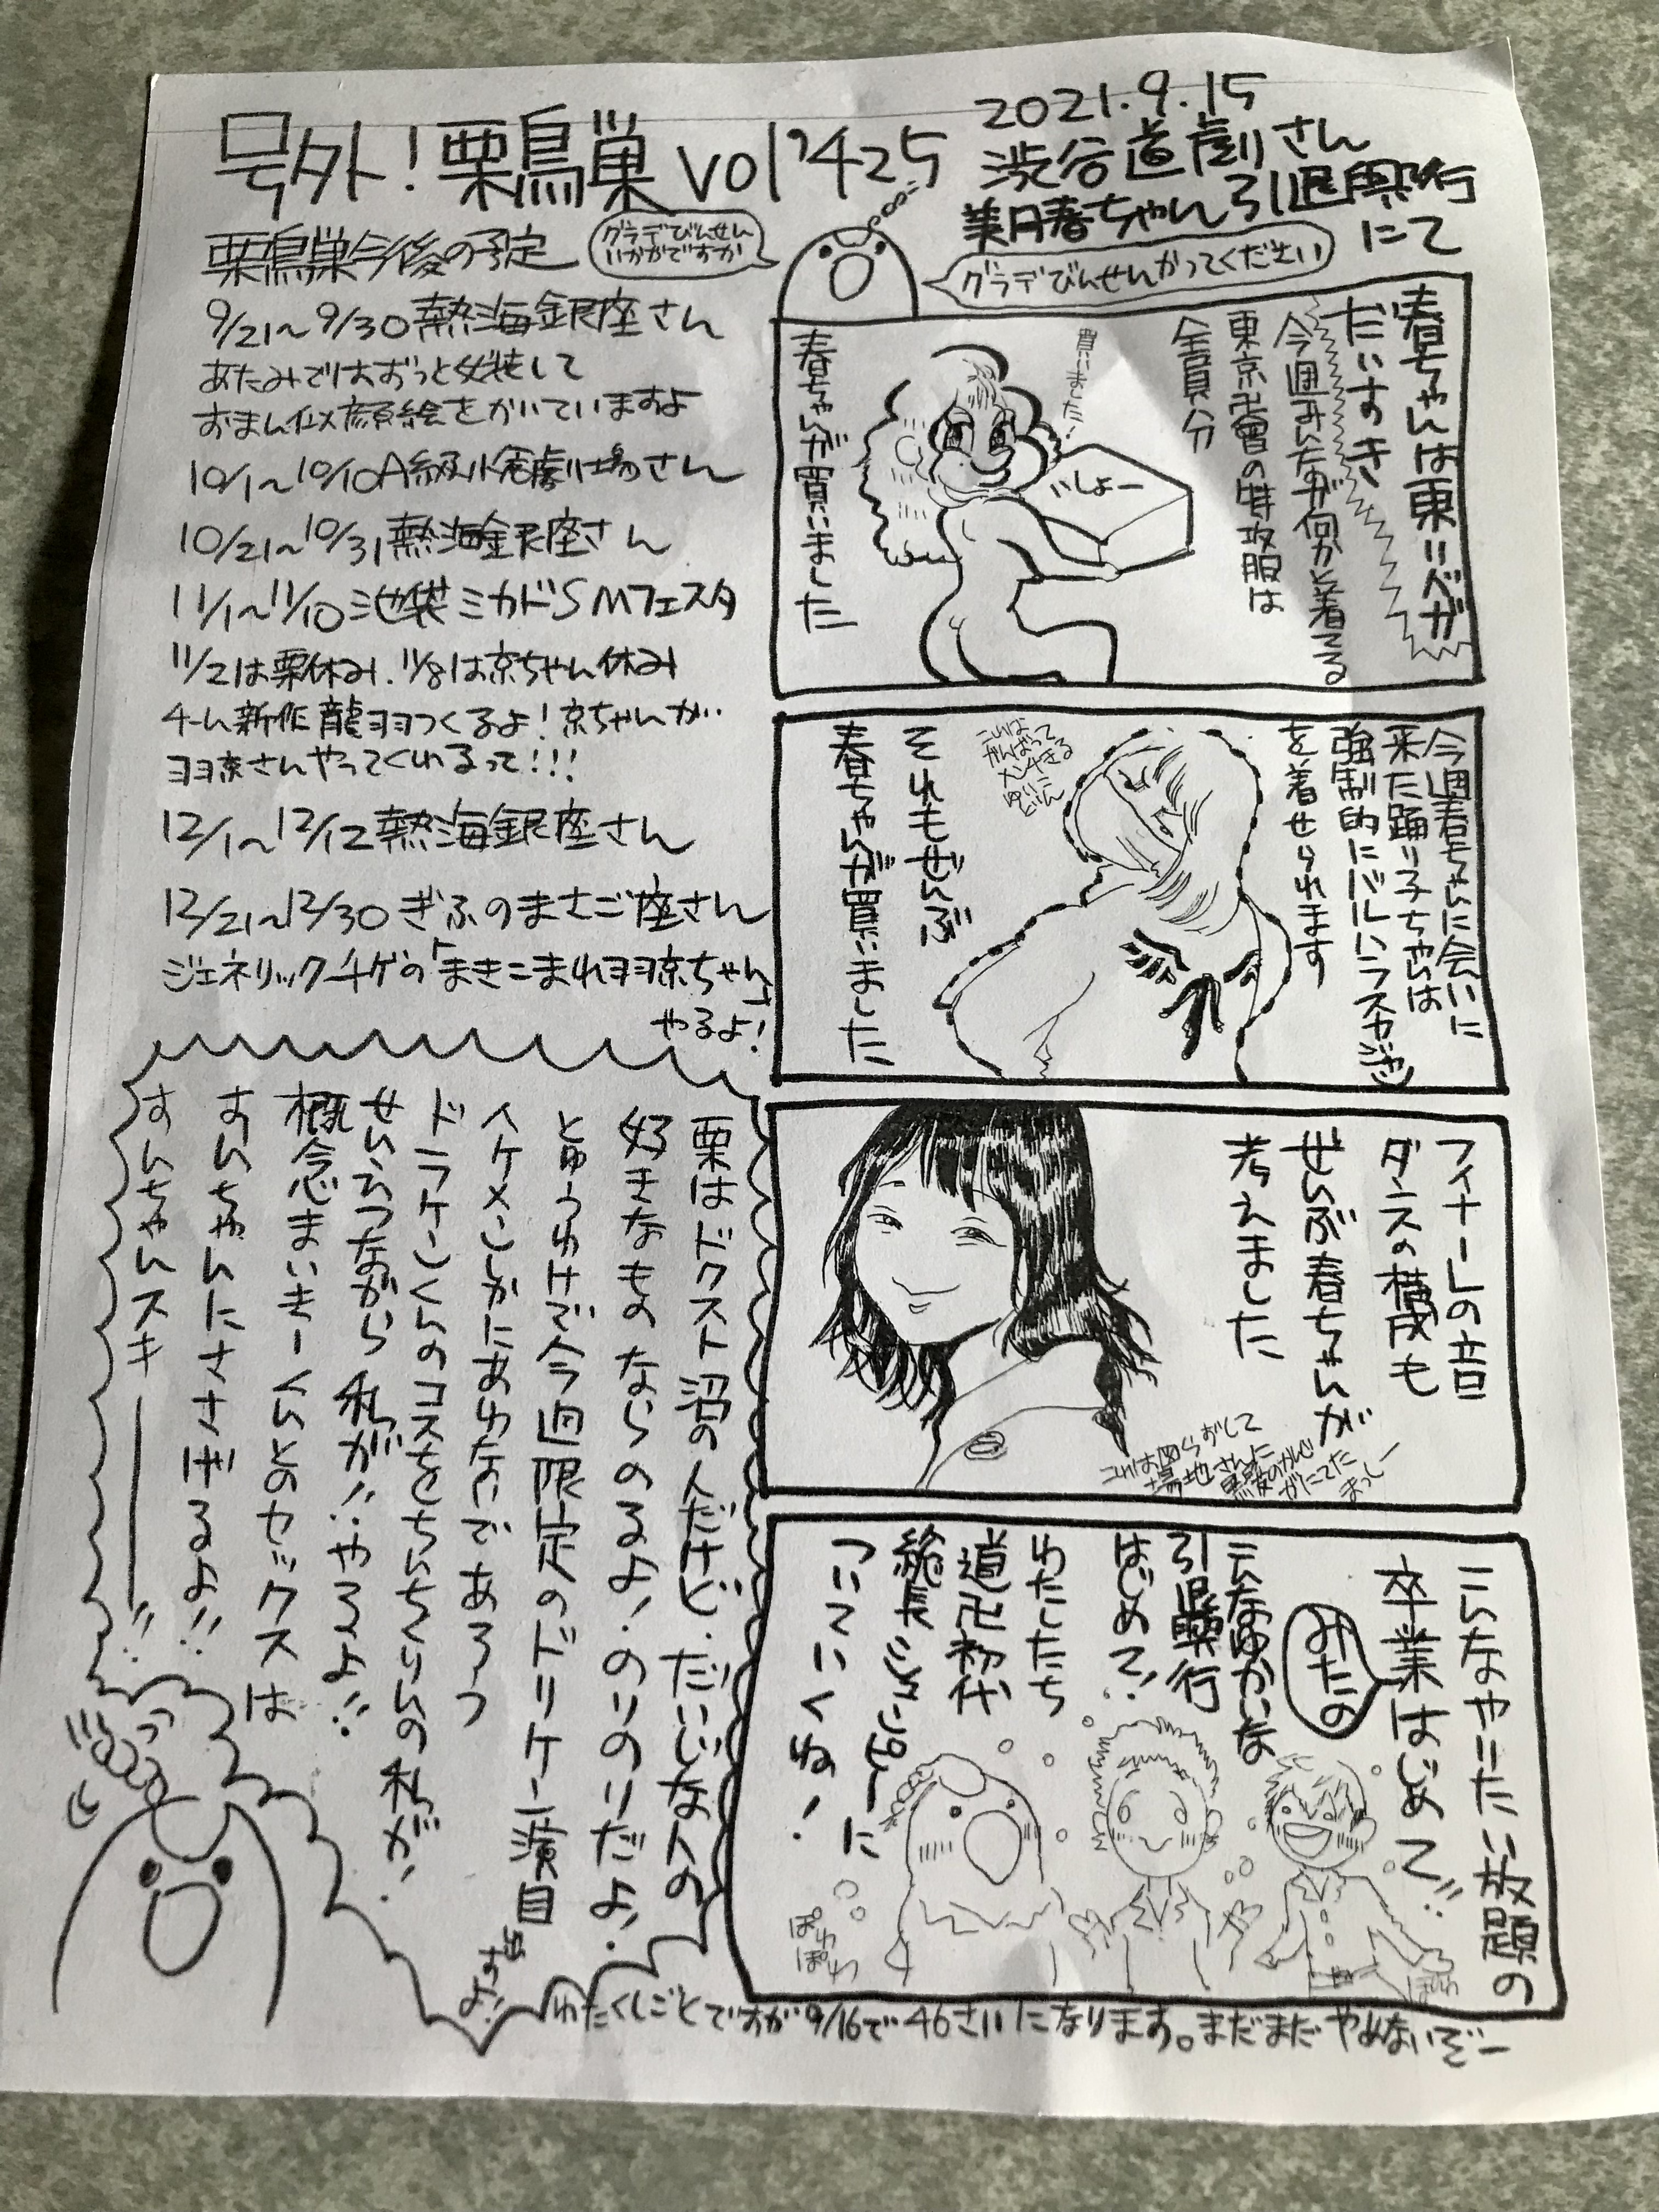 号外!栗鳥巣vol'425
2021.9.15
渋谷道劇さん
美月春ちゃん引退興行
にて
栗鳥巣今後の予定
グラデびんせん
いかがですか
グラデびんせんかってください
9/21〜9/30熱海銀座さん
あたみではおっと女装して
おまん似顔絵をかいていますよ
10/1〜10/10A級小倉劇場さん
10/21〜10/31熱海銀座さん
11/1〜11/10池袋ミカドSMフェスタ
11/2は栗休み.11/8は京ちゃん休み
チーム新作龍羽つくるよ!京ちゃんが
羽京さんやってくれるって!!!
12/1〜12/12熱海銀座さん
12/21〜12/30ぎふのまさご座さん
ジェネリックチゲの「まきこまれ羽京ちゃん」
やるよ!
春ちゃんは東リベが
だいすき
今週みんなが何かと着てる
東京卍會の特攻服は
全員分
買いました!
いしょー
春ちゃんが買いました
今週春ちゃんに会いに
来た踊り子ちゃんは
強制的にバルハラスカジャン
を着せられます
それもぜんぶ
春ちゃんが買いました
フィナーレの音
ダンスの構成も
ぜんぶ春ちゃんが
考えました
これは図らずして
場地さんに
黒髪のかんじ
がにてた
まっしー
こんなやりたい放題の
卒業はじめて!!
みたの
こんなゆかいな
引退興行
はじめて!
わたしたち
道卍初代
総長
ついていくね!
ぽわ
ぽわ
ぽわ
栗はドクスト沼の人だけど、だいじな人の
好きなものならのるよ!のりのりだよ!
とゆうわけで今週限定のドリケー演目
だすよ!
イケメンしかにあわないであろう
ドラケンくんのコスをちんちくりんの私が!
せいざつながら私が!!やるよ!!
概念まいキーくんとのセックスは
すんちゃんにささげるよ!!
すんちゃんスキー!!
わたくしごとですが9/16で46さいになります。まだまだやめないぞー